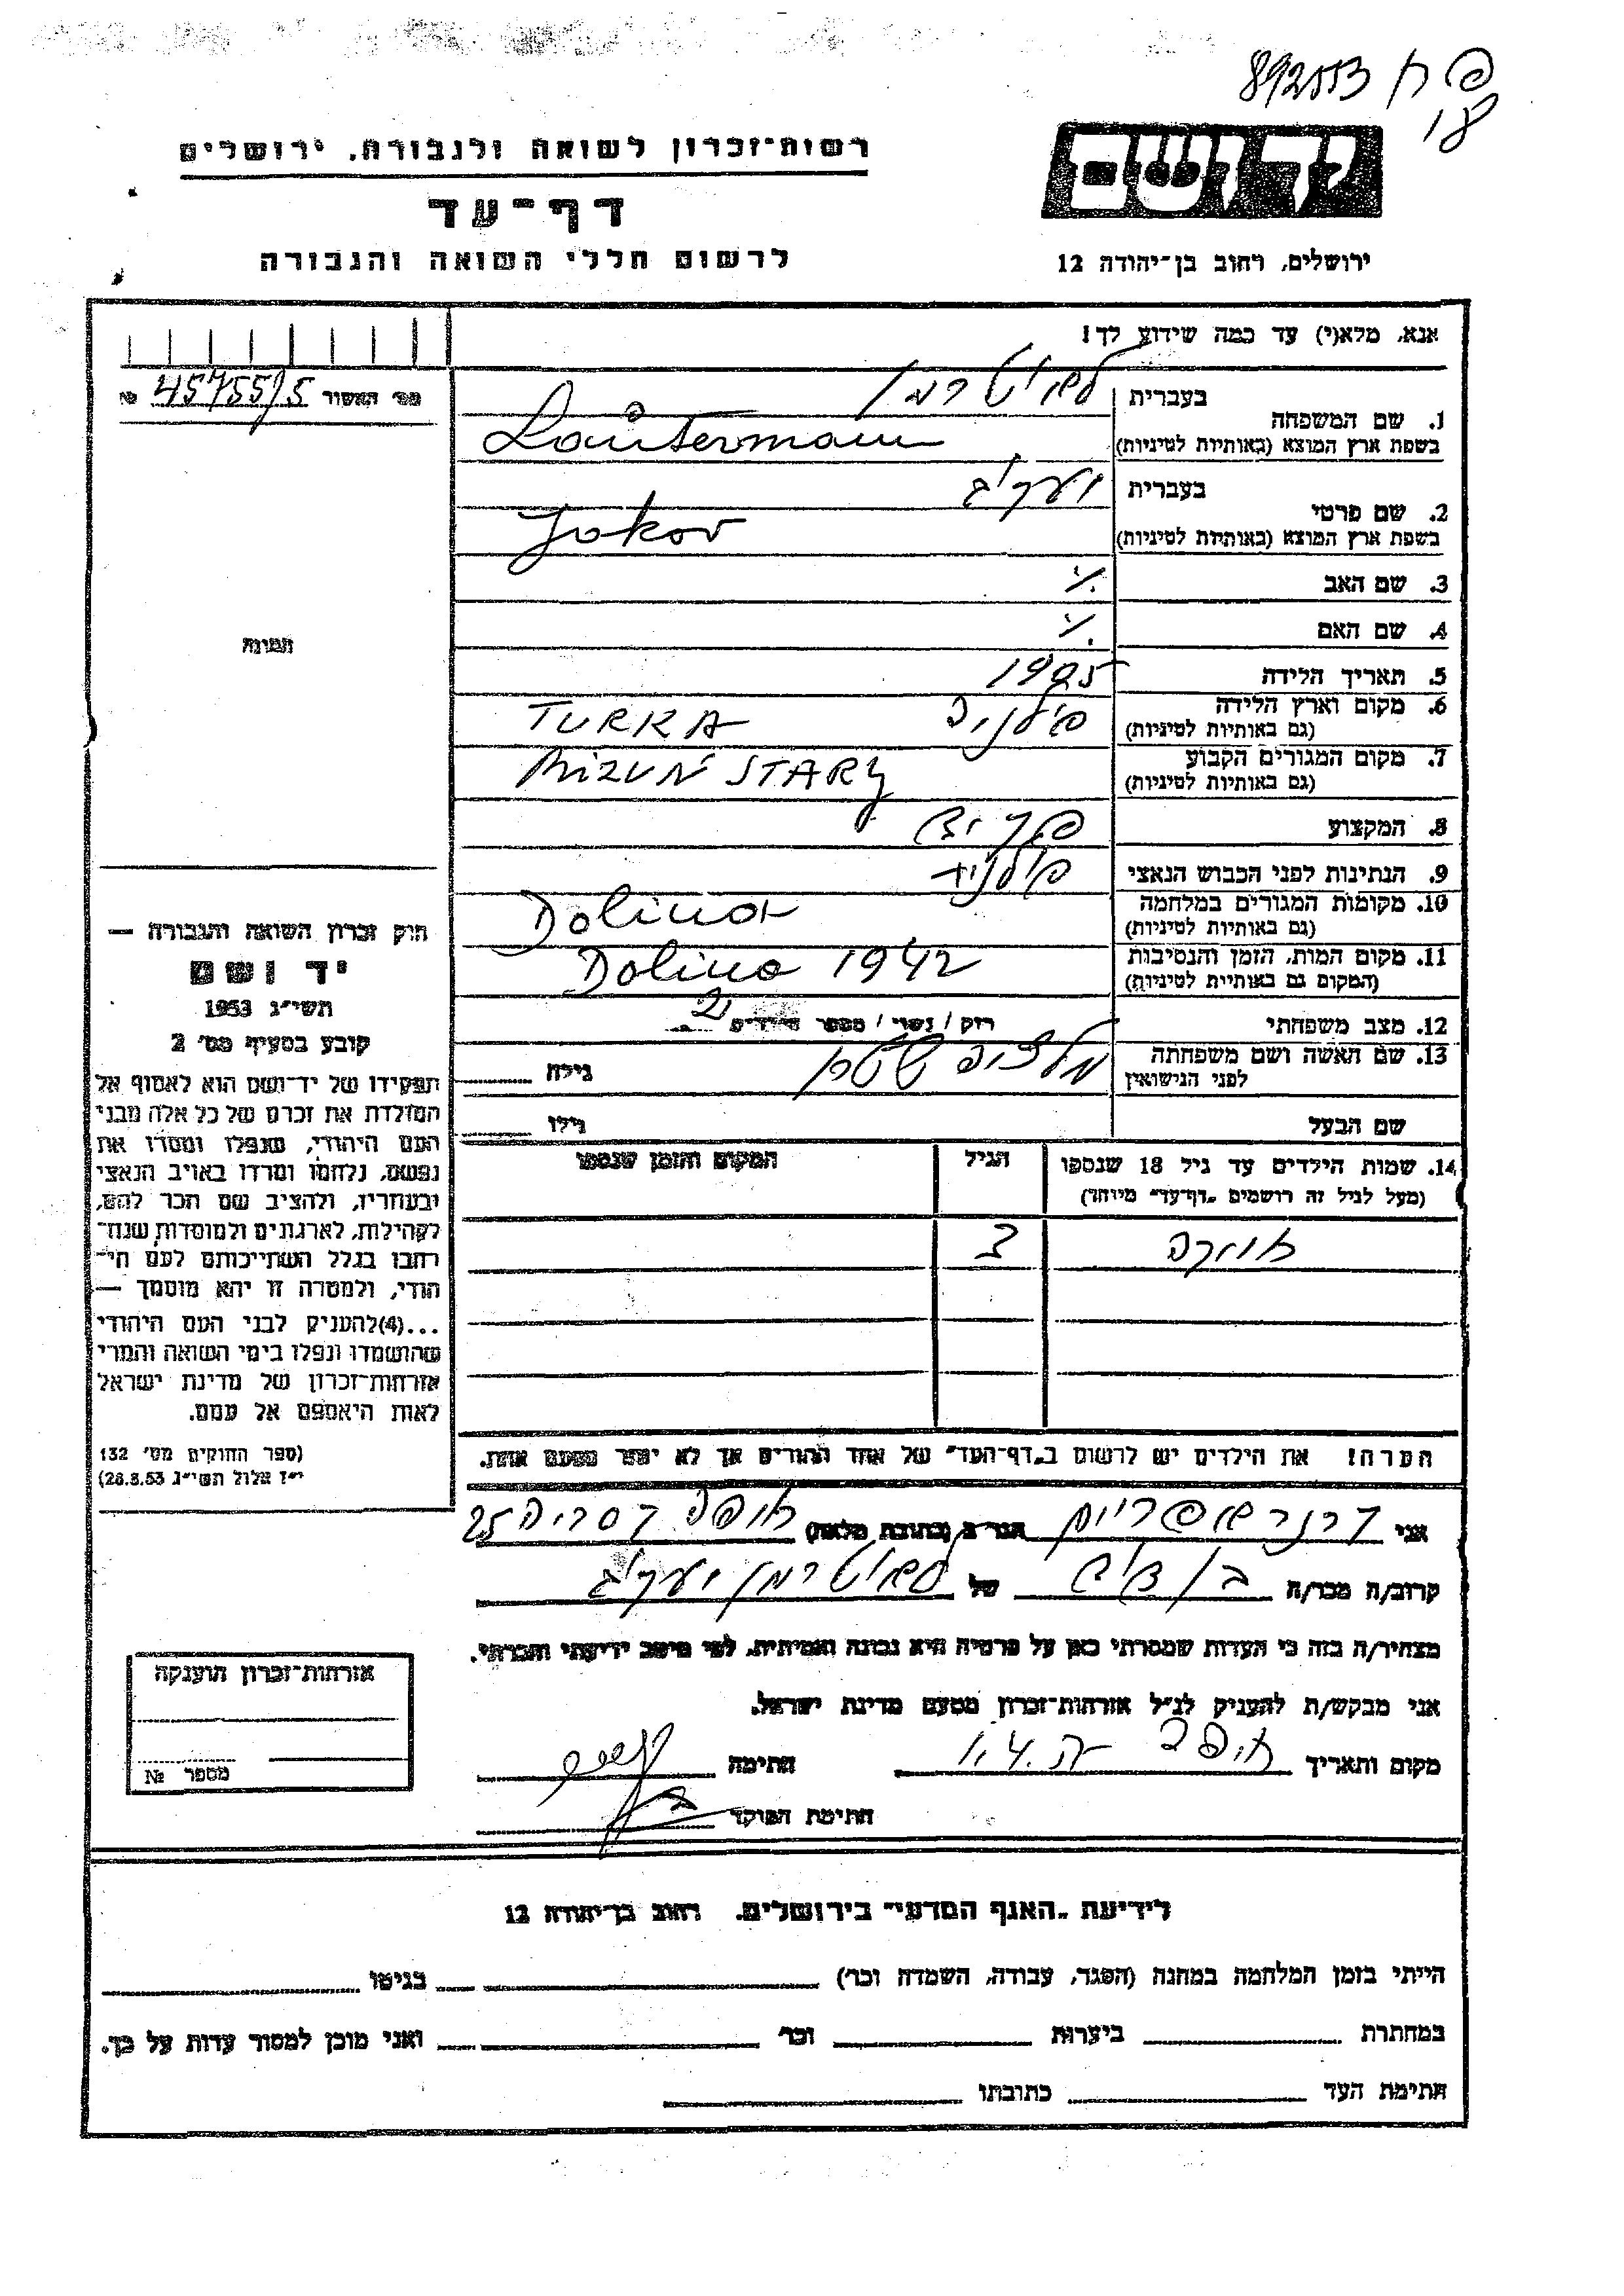 892553
18
רשות־זכרון לשואה ולגבורה, ירושלים
דף־עד
לרשום חללי השואה והגבורה
ירושלים, רחוב בן־יהודה 12
אנא, מלא(י) עד כמה שידוע לך!
מס׳ האשור 45755/5 №
1. שם המשפחה
בעברית
בשפת ארץ המוצא (באותיות לטיניות)
לאוטרמן
Lautermann
2. שם פרטי
בעברית יעקב
בשפת ארץ המוצא (באותיות לטיניות)
Jokov
3. שם האב
4. שם האם
5. תאריך הלידה
6. מקום וארץ הלידה
(גם באותיות לטיניות)
TURKA
7. מקום המגורים הקבוע
(גם באותיות לטיניות)
MIZUŃ STARY
8. המקצוע פקיד
9. הנתינות לפני הכבוש הנאצי
10. מקומות המגורים במלחמה
(גם באותיות לטיניות)
Dolina
11. מקום המות, הזמן והנסיבות
(המקום גם באותיות לטיניות)
Dolina 1942
12. מצב משפחתי רוק / נשוי / מספר הילדים
13. שם האשה ושם משפחתה
לפני הנישואין
גילה
שם הבעל גילו
14. שמות הילדים עד גיל 18 שנספו
(מעל לגיל זה רושמים „דף־עד״ מיוחד)
הגיל
המקום והזמן שנספו
הערה! את הילדים יש לרשום ב„דף־העד״ של אחד ההורים אך לא יותר מפעם אחת.
אני הגר ב (כתובת מלאה) 25
קרוב/ה מכר/ה בן דוד של לאוטרמן יעקב
מצהיר/ה בזה כי העדות שמסרתי כאן על פרטיה היא נכונה ואמיתית, לפי מיטב ידיעתי והכרתי.
אני מבקש/ת להעניק לנ״ל אזרחות־זכרון מטעם מדינת ישראל.
מקום ותאריך חיפה חתימה
חתימת הפוקד
תמונה
חוק זכרון השואה והגבורה —
יד ושם
תשי״ג 1953
קובע בסעיף מס׳ 2
תפקידו של יד־ושם הוא לאסוף אל
המולדת את זכרם של כל אלה מבני
העם היהודי, שנפלו ומסרו את
נפשם, נלחמו ומרדו באויב הנאצי
ובעוזריו, ולהציב שם וזכר להם,
לקהילות, לארגונים ולמוסדות שנח־
רבו בגלל השתייכותם לעם הי־
הודי, ולמטרה זו יהא מוסמך —
...(4)להעניק לבני העם היהודי
שהושמדו ונפלו בימי השואה והמרי
אזרחות־זכרון של מדינת ישראל
לאות היאספם אל עמם.
(ספר החוקים מס׳ 132
י״ז אלול תשי״ג 28.8.53)
אזרחות־זכרון הוענקה
מספר №
לידיעת „האגף המדעי״ בירושלים, רחוב בן־יהודה 12
הייתי בזמן המלחמה במחנה (הסגר, עבודה, השמדה וכו׳) בגיטו
במחתרת ביערות וכו׳ ואני מוכן למסור עדות על כך.
חתימת העד כתובתו